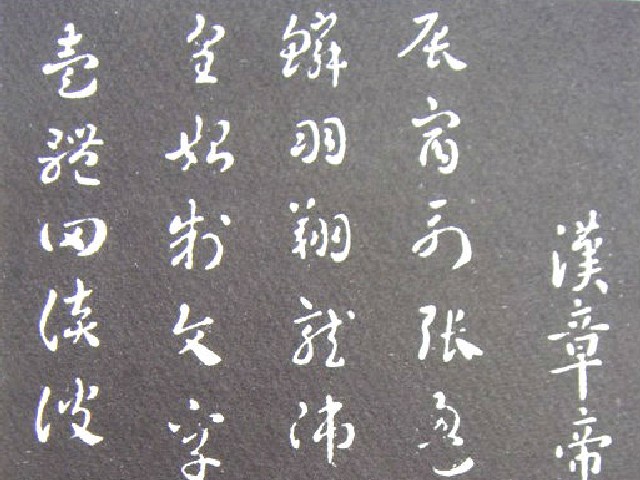 漢章帝
辰宿列張
鱗羽翔龍師
皇始制文字
壹體罔談彼